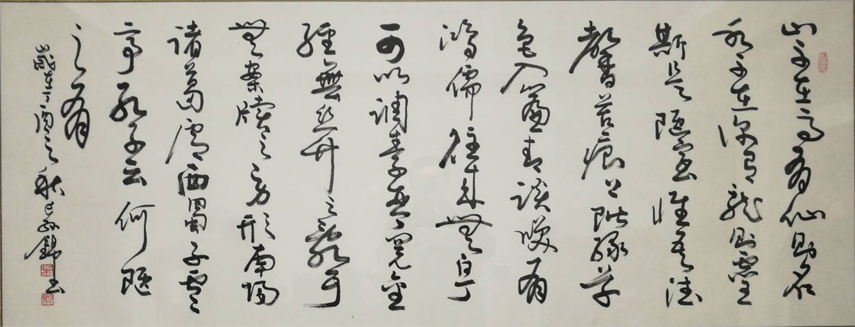 山不在高有仙則名
水不在深有龍則靈
斯是陋室惟吾德
馨苔痕上階緑草
色入簾青談笑有
鴻儒往來無白丁
可以調素琴閱金
經無丝竹之亂耳
無案牘之勞形南陽
諸葛廬西蜀子雲
亭孔子云何陋
之有
歲在丁酉之秋錦书